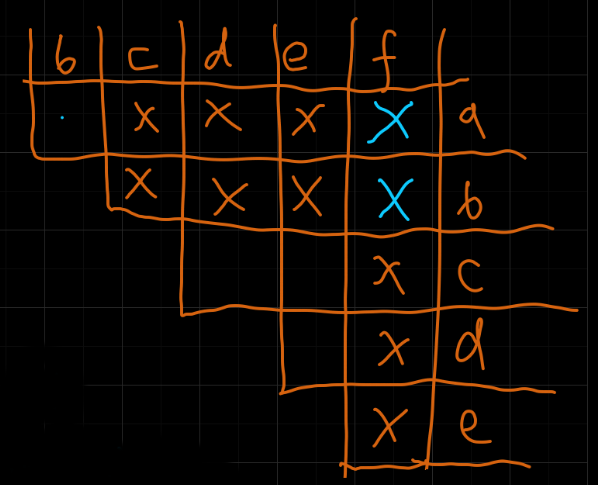 b c d e f
· x x x x a
x x x x b
x c
x d
x e